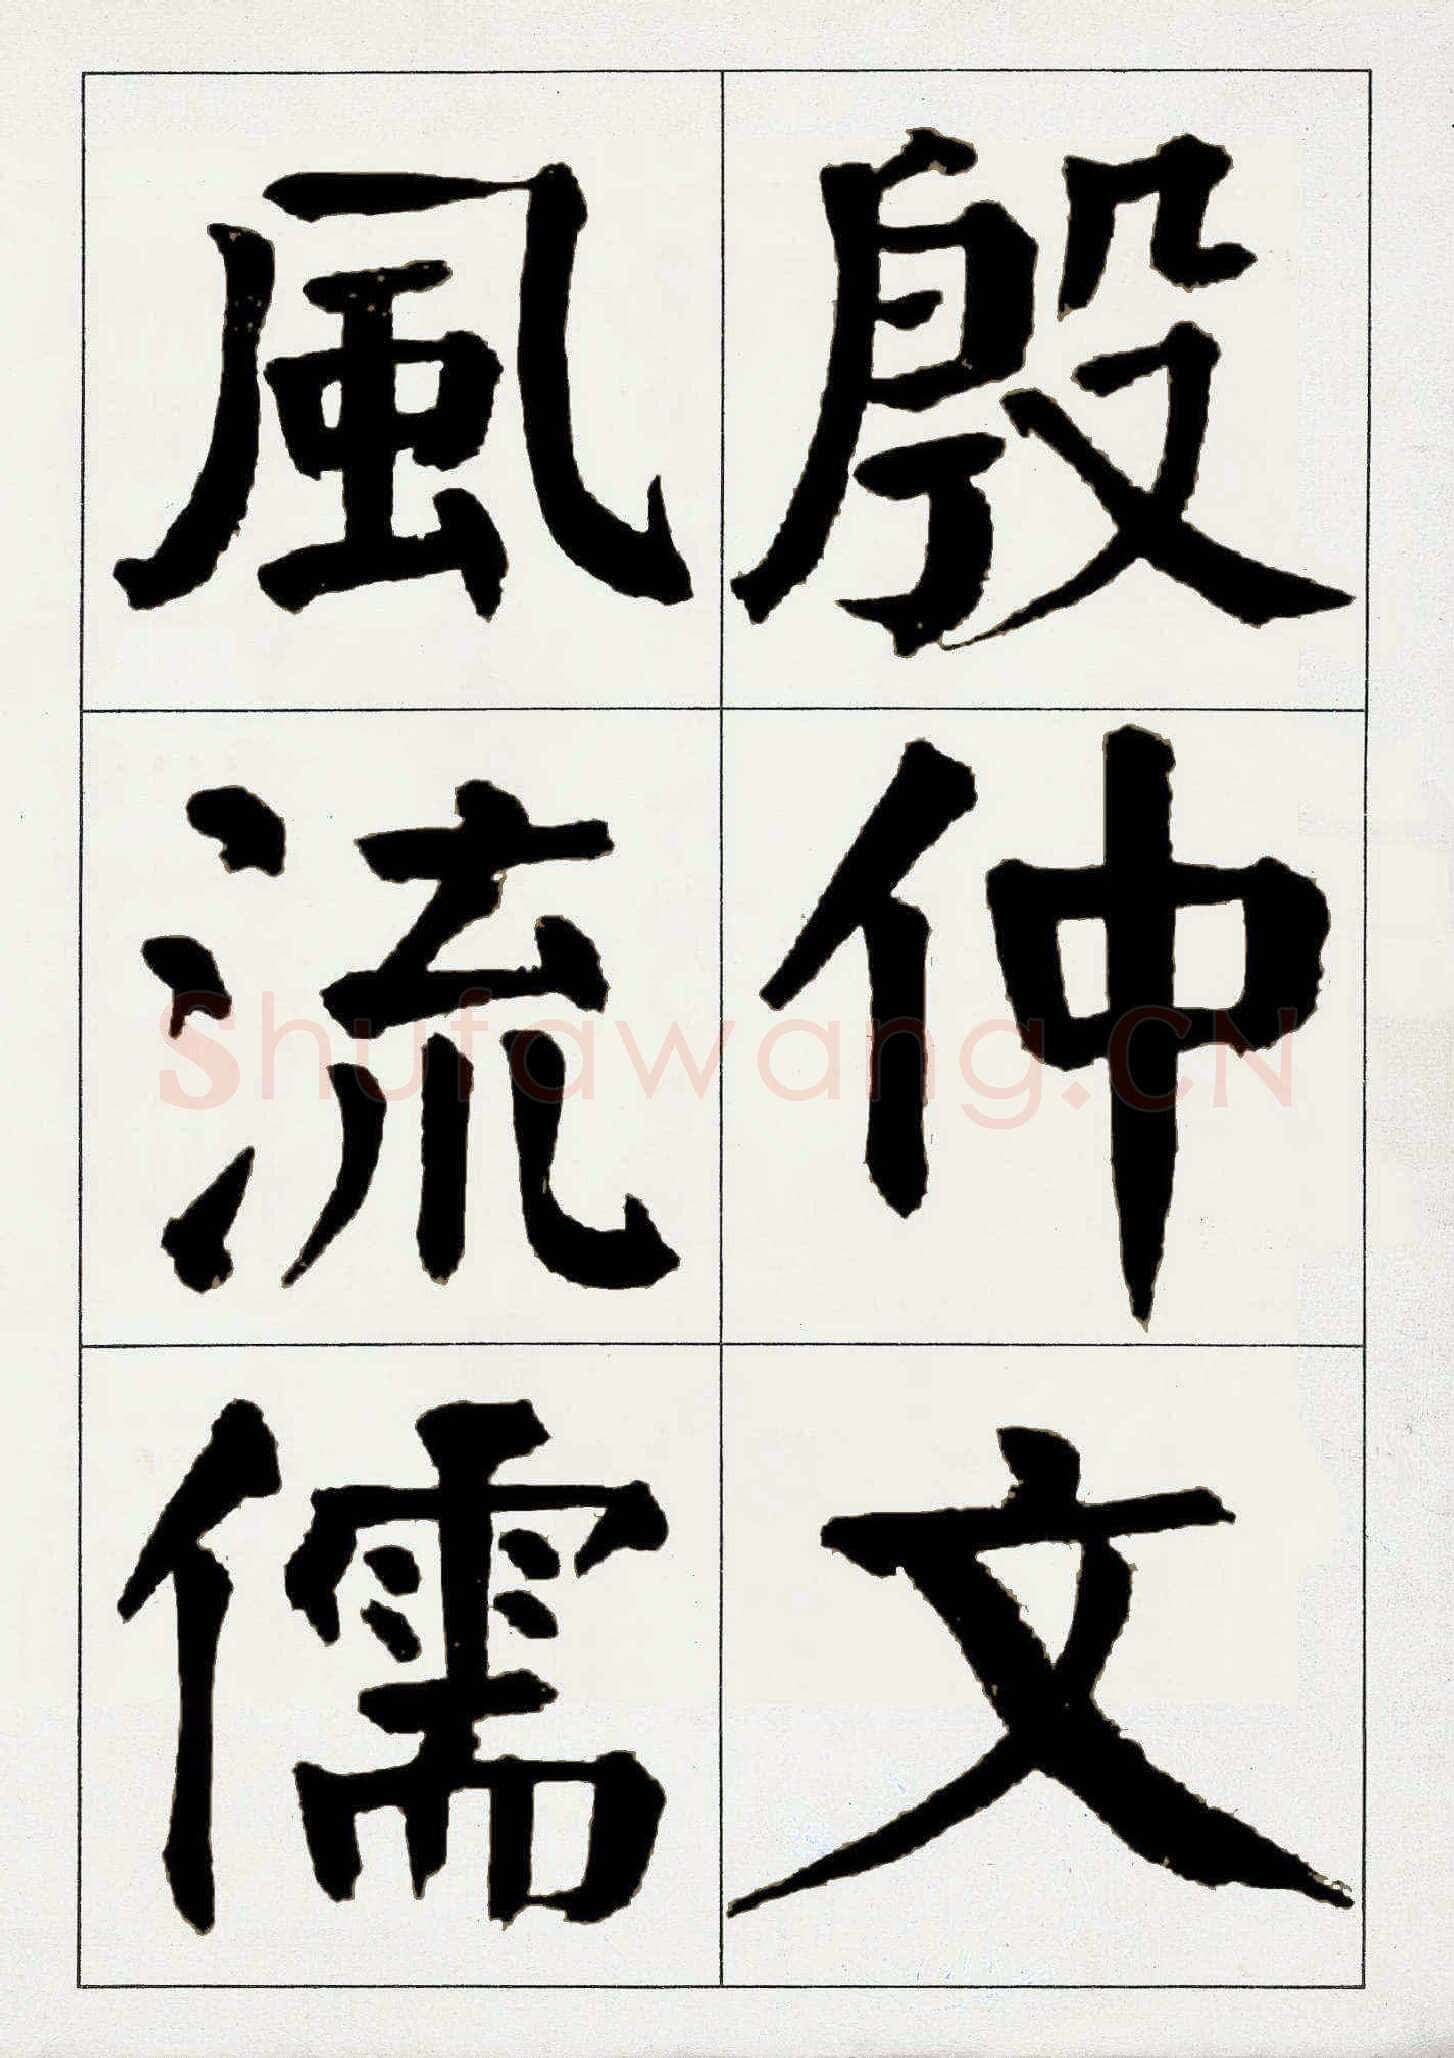 殷仲文
風流儒
Shufawang.CN